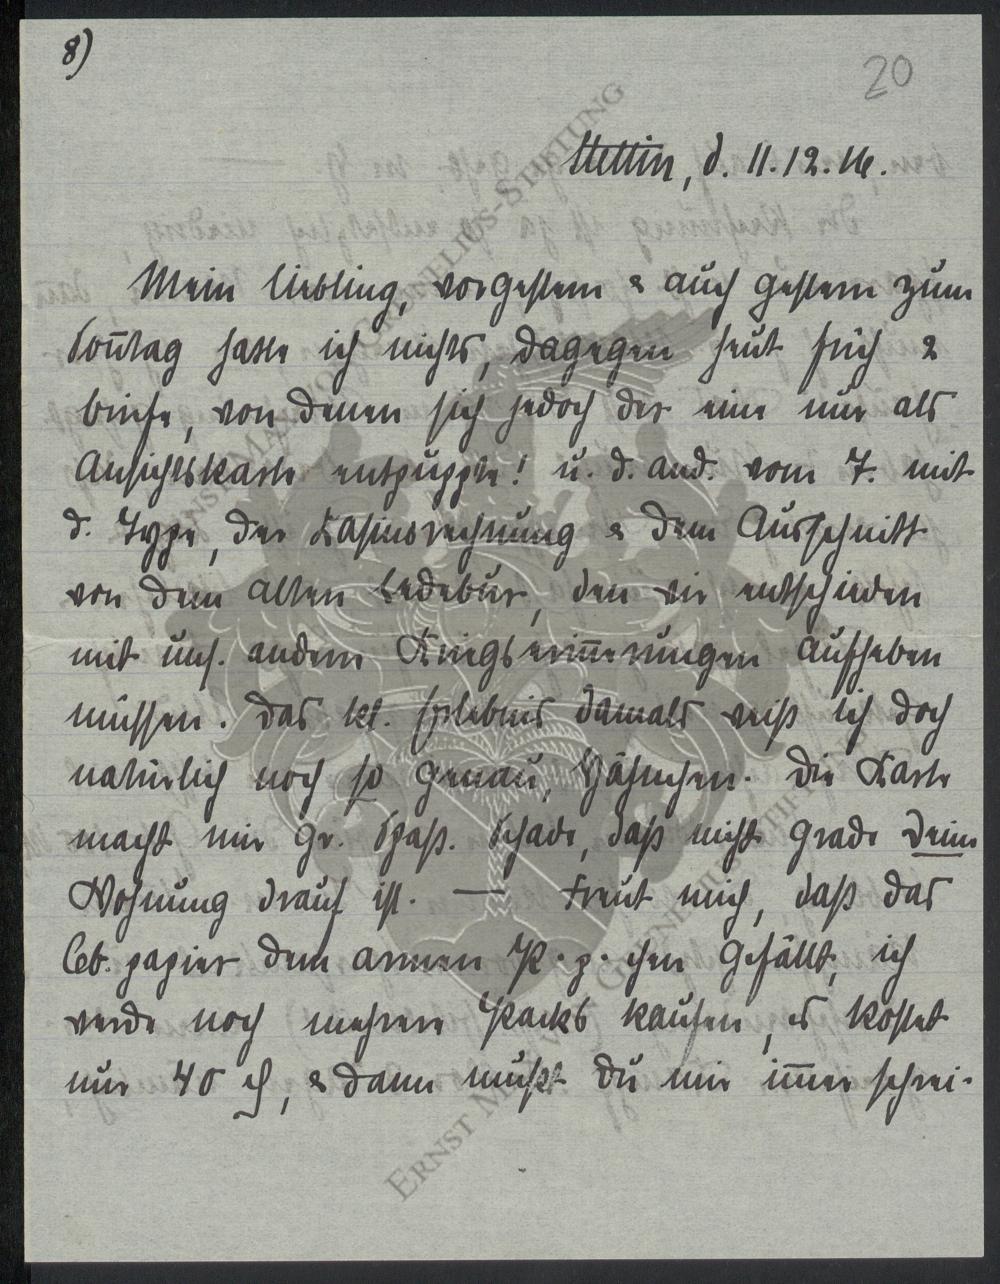 8)
20
Stettin, d. 11.12.16.
Mein Liebling, vorgestern & auch gestern zum
Sonntag hatte ich nichts, dagegen heut früh 2
briefe, von denen sich jedoch der eine nur als
Ansichtskarte entpuppte! u. d. and. vom 7. mit
d. Type, der Kasinorechnung & dem Ausschnitt
von dem alten Ledebur, den wir entschieden
mit uns. andern Kriegserinnerungen aufheben
müssen. Das kl. Erlebnis damals weiß ich doch
natürlich noch so genau, . Die Karte
macht mir gr. Spaß. Schade, daß nicht grade Deine
Wohnung drauf ist. — Freut mich, daß das
Cb. papier dem armen P. p. chen gefällt, ich
werde noch mehrere Packs kaufen, es kostet
nur 40 ₰, & dann mußt Du mir im̅er schrei-
ERNST MAX VON GRENELIUS-STIFTUNG
ERNST MAX VON GRENELIUS-STIFTUNG